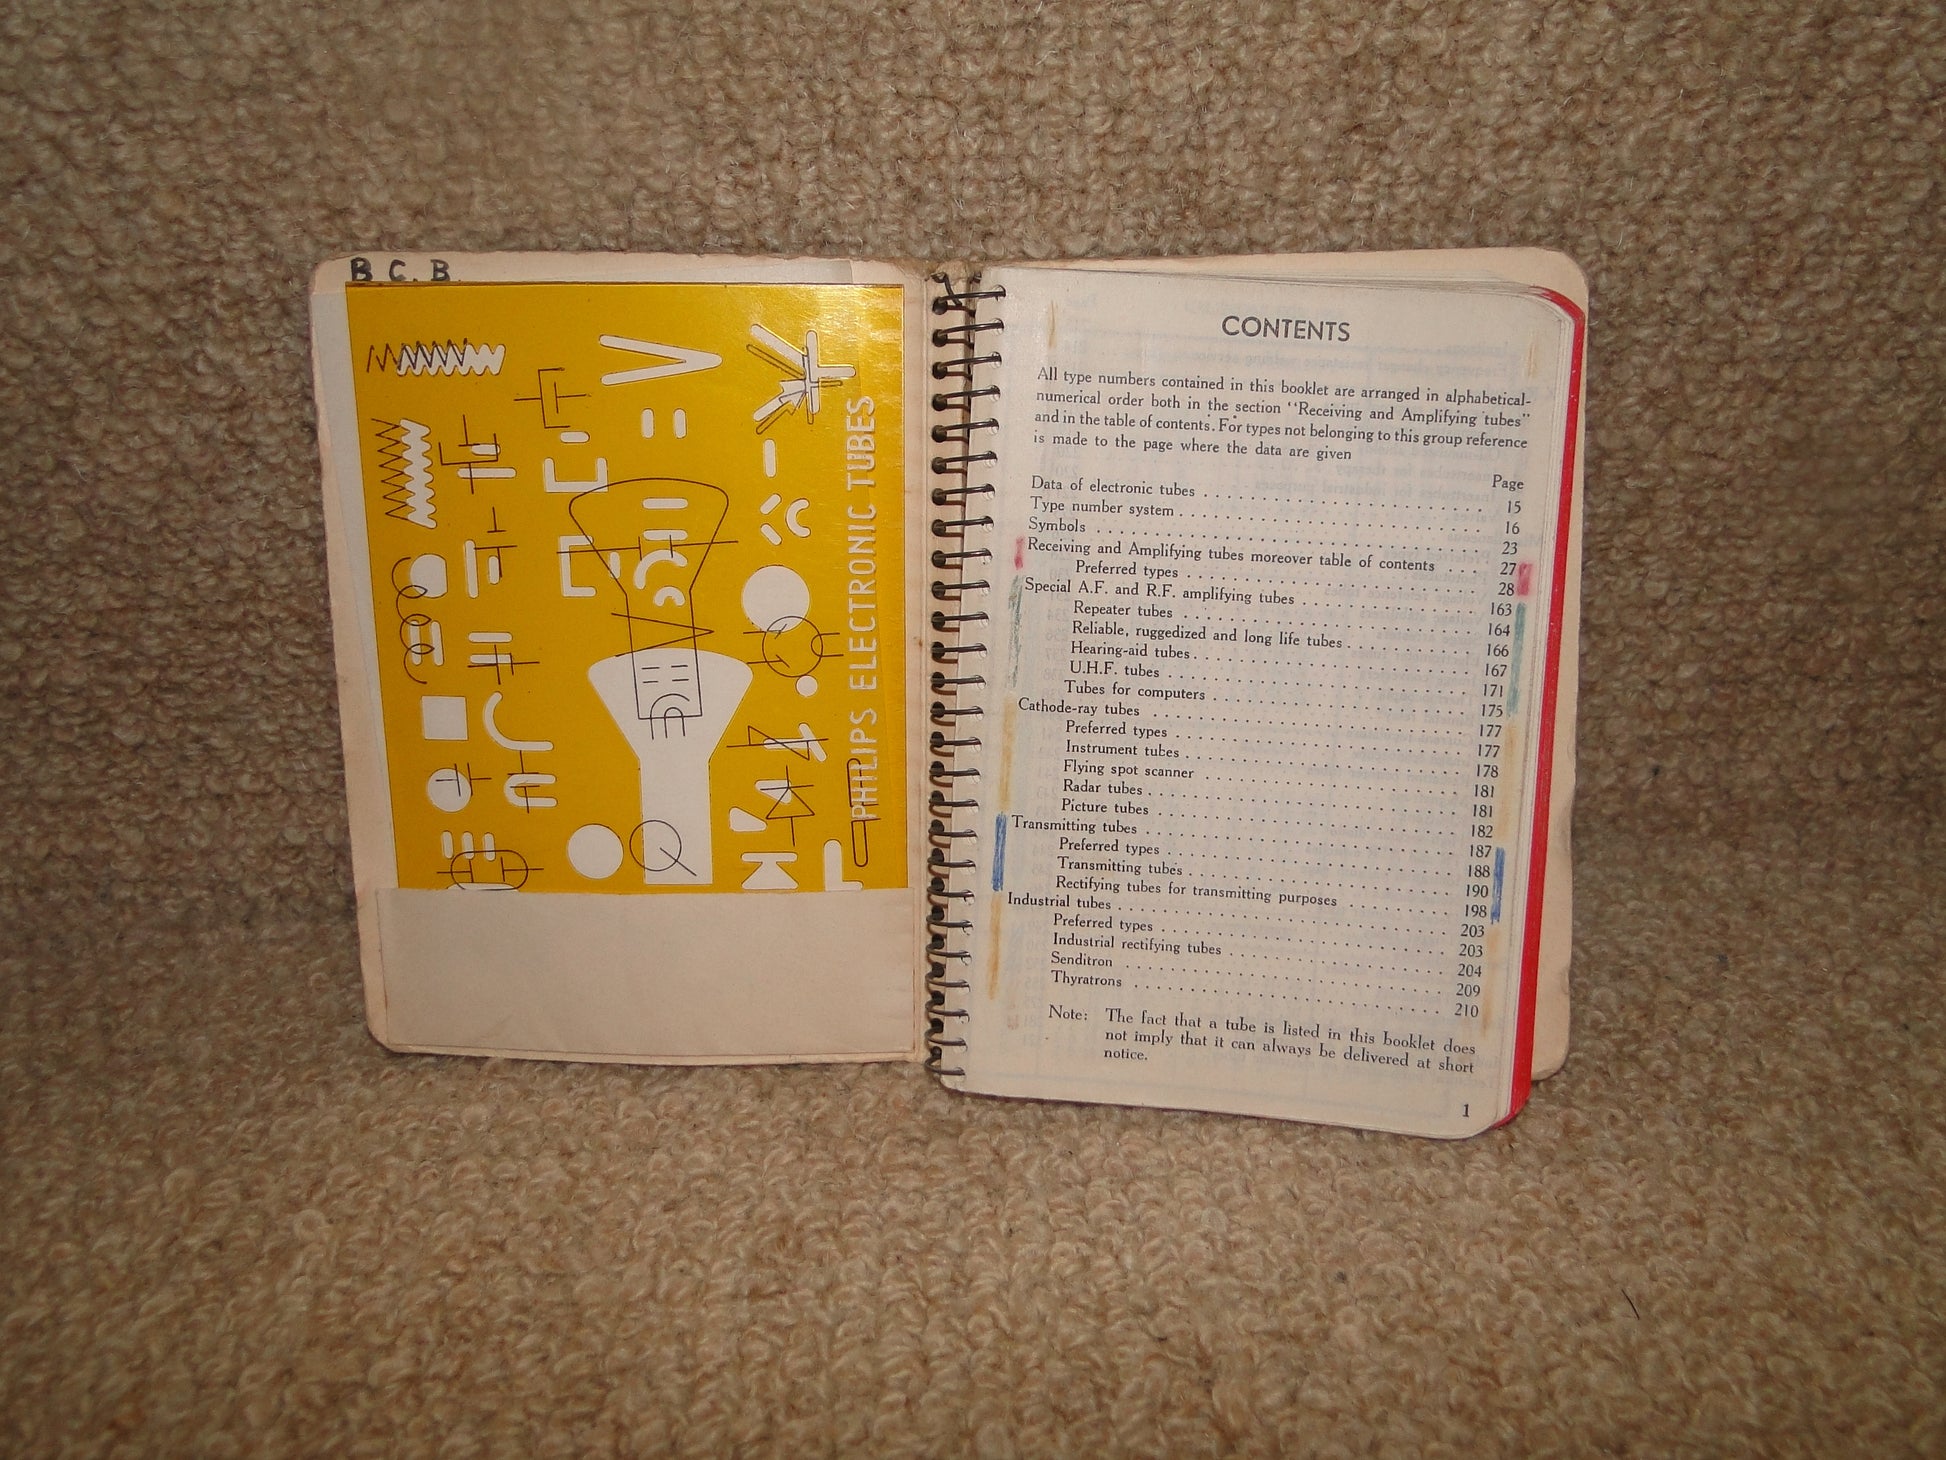 B. C. B.
PHILIPS ELECTRONIC TUBES
CONTENTS
All type numbers contained in this booklet are arranged in alphabetical-
numerical order both in the section "Receiving and Amplifying tubes"
and in the table of contents. For types not belonging to this group reference
is made to the page where the data are given
Page
Data of electronic tubes . . . . . . . . . . . . . . . . . . 15
Type number system . . . . . . . . . . . . . . . . . . . . 16
Symbols . . . . . . . . . . . . . . . . . . . . . . . . . . 23
Receiving and Amplifying tubes moreover table of contents . . . 27
Preferred types . . . . . . . . . . . . . . . . . . . . 28
Special A.F. and R.F. amplifying tubes . . . . . . . . . . . . 163
Repeater tubes . . . . . . . . . . . . . . . . . . . . 164
Reliable, ruggedized and long life tubes . . . . . . . . . 166
Hearing-aid tubes . . . . . . . . . . . . . . . . . . . 167
U.H.F. tubes . . . . . . . . . . . . . . . . . . . . . 171
Tubes for computers . . . . . . . . . . . . . . . . . . 175
Cathode-ray tubes . . . . . . . . . . . . . . . . . . . . . 177
Preferred types . . . . . . . . . . . . . . . . . . . . 177
Instrument tubes . . . . . . . . . . . . . . . . . . . 178
Flying spot scanner . . . . . . . . . . . . . . . . . . 181
Radar tubes . . . . . . . . . . . . . . . . . . . . . . 181
Picture tubes . . . . . . . . . . . . . . . . . . . . . 182
Transmitting tubes . . . . . . . . . . . . . . . . . . . . . 187
Preferred types . . . . . . . . . . . . . . . . . . . . 188
Transmitting tubes . . . . . . . . . . . . . . . . . . 190
Rectifying tubes for transmitting purposes . . . . . . . . 198
Industrial tubes . . . . . . . . . . . . . . . . . . . . . . 203
Preferred types . . . . . . . . . . . . . . . . . . . . 203
Industrial rectifying tubes . . . . . . . . . . . . . . . 204
Senditron . . . . . . . . . . . . . . . . . . . . . . . 209
Thyratrons . . . . . . . . . . . . . . . . . . . . . . 210
Note: The fact that a tube is listed in this booklet does
not imply that it can always be delivered at short
notice.
1